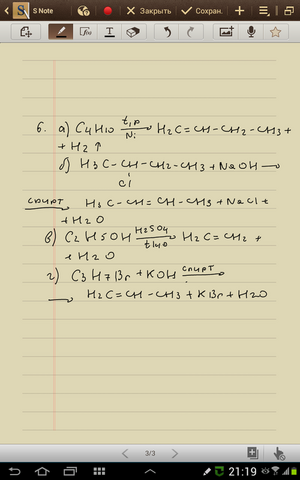 S Note
Закрыть
Сохран.
6. а) C4H10 t,p Ni → H2C=CH-CH2-CH3+
+ H2 ↑
б) H3C-CH-CH2-CH3 + NaOH →
Cl
спирт H3C-CH=CH-CH3 + NaCl +
+ H2O
в) C2H5OH H2SO4 t140 → H2C=CH2 +
+ H2O
г) C3H7Br + KOH спирт
→ H2C=CH-CH3 + KBr + H2O
3/3
21:19